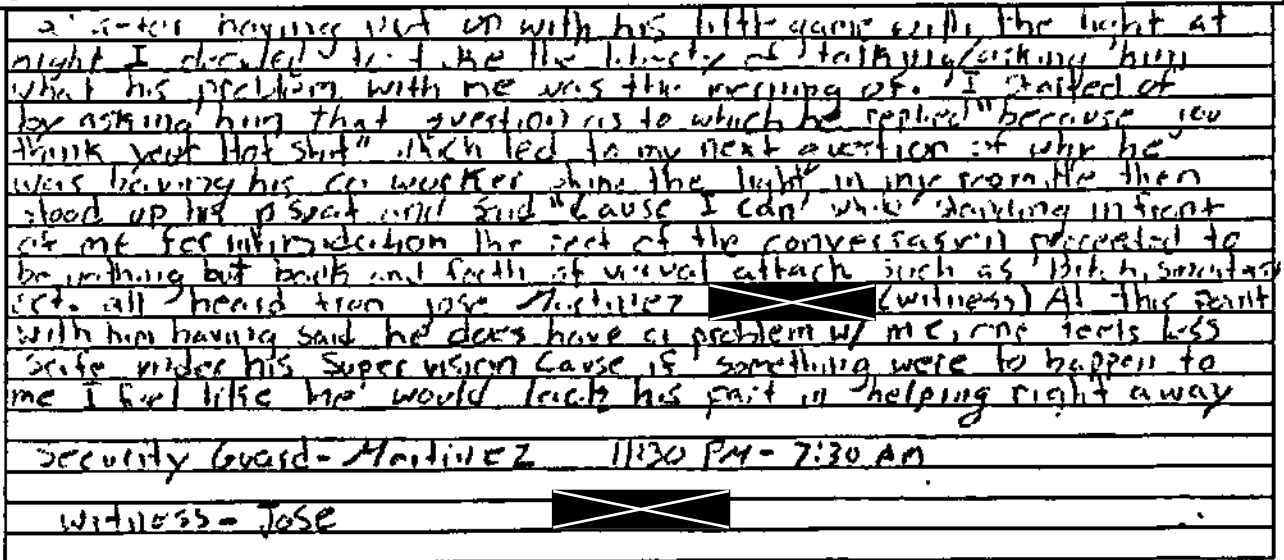 having put up with his little game with the light at
night I decided to take the liberty of talking/asking him
what his problem with me was the morning of. I Started of
by asking him that question as to which he replied "because you
think your Hot Shit" which led to my next question of why he
was having his co worker shine the light in my room. He then
stood up his seat and said "Cause I Can" while standing infront
of me for intimidation the rest of the conversation proceeded to
be nothing but back and forth of verbal attack such as Bitch,
ect. all heard from Jose Martinez (witness) At this point
with him having said he does have a problem w/ me, one feels Less
Safe under his Supervision Cause if something were to happen to
me I feel like he would lack his part in helping right away
Security Guard- Martinez 11:30 PM- 7:30 AM
Witness- Jose